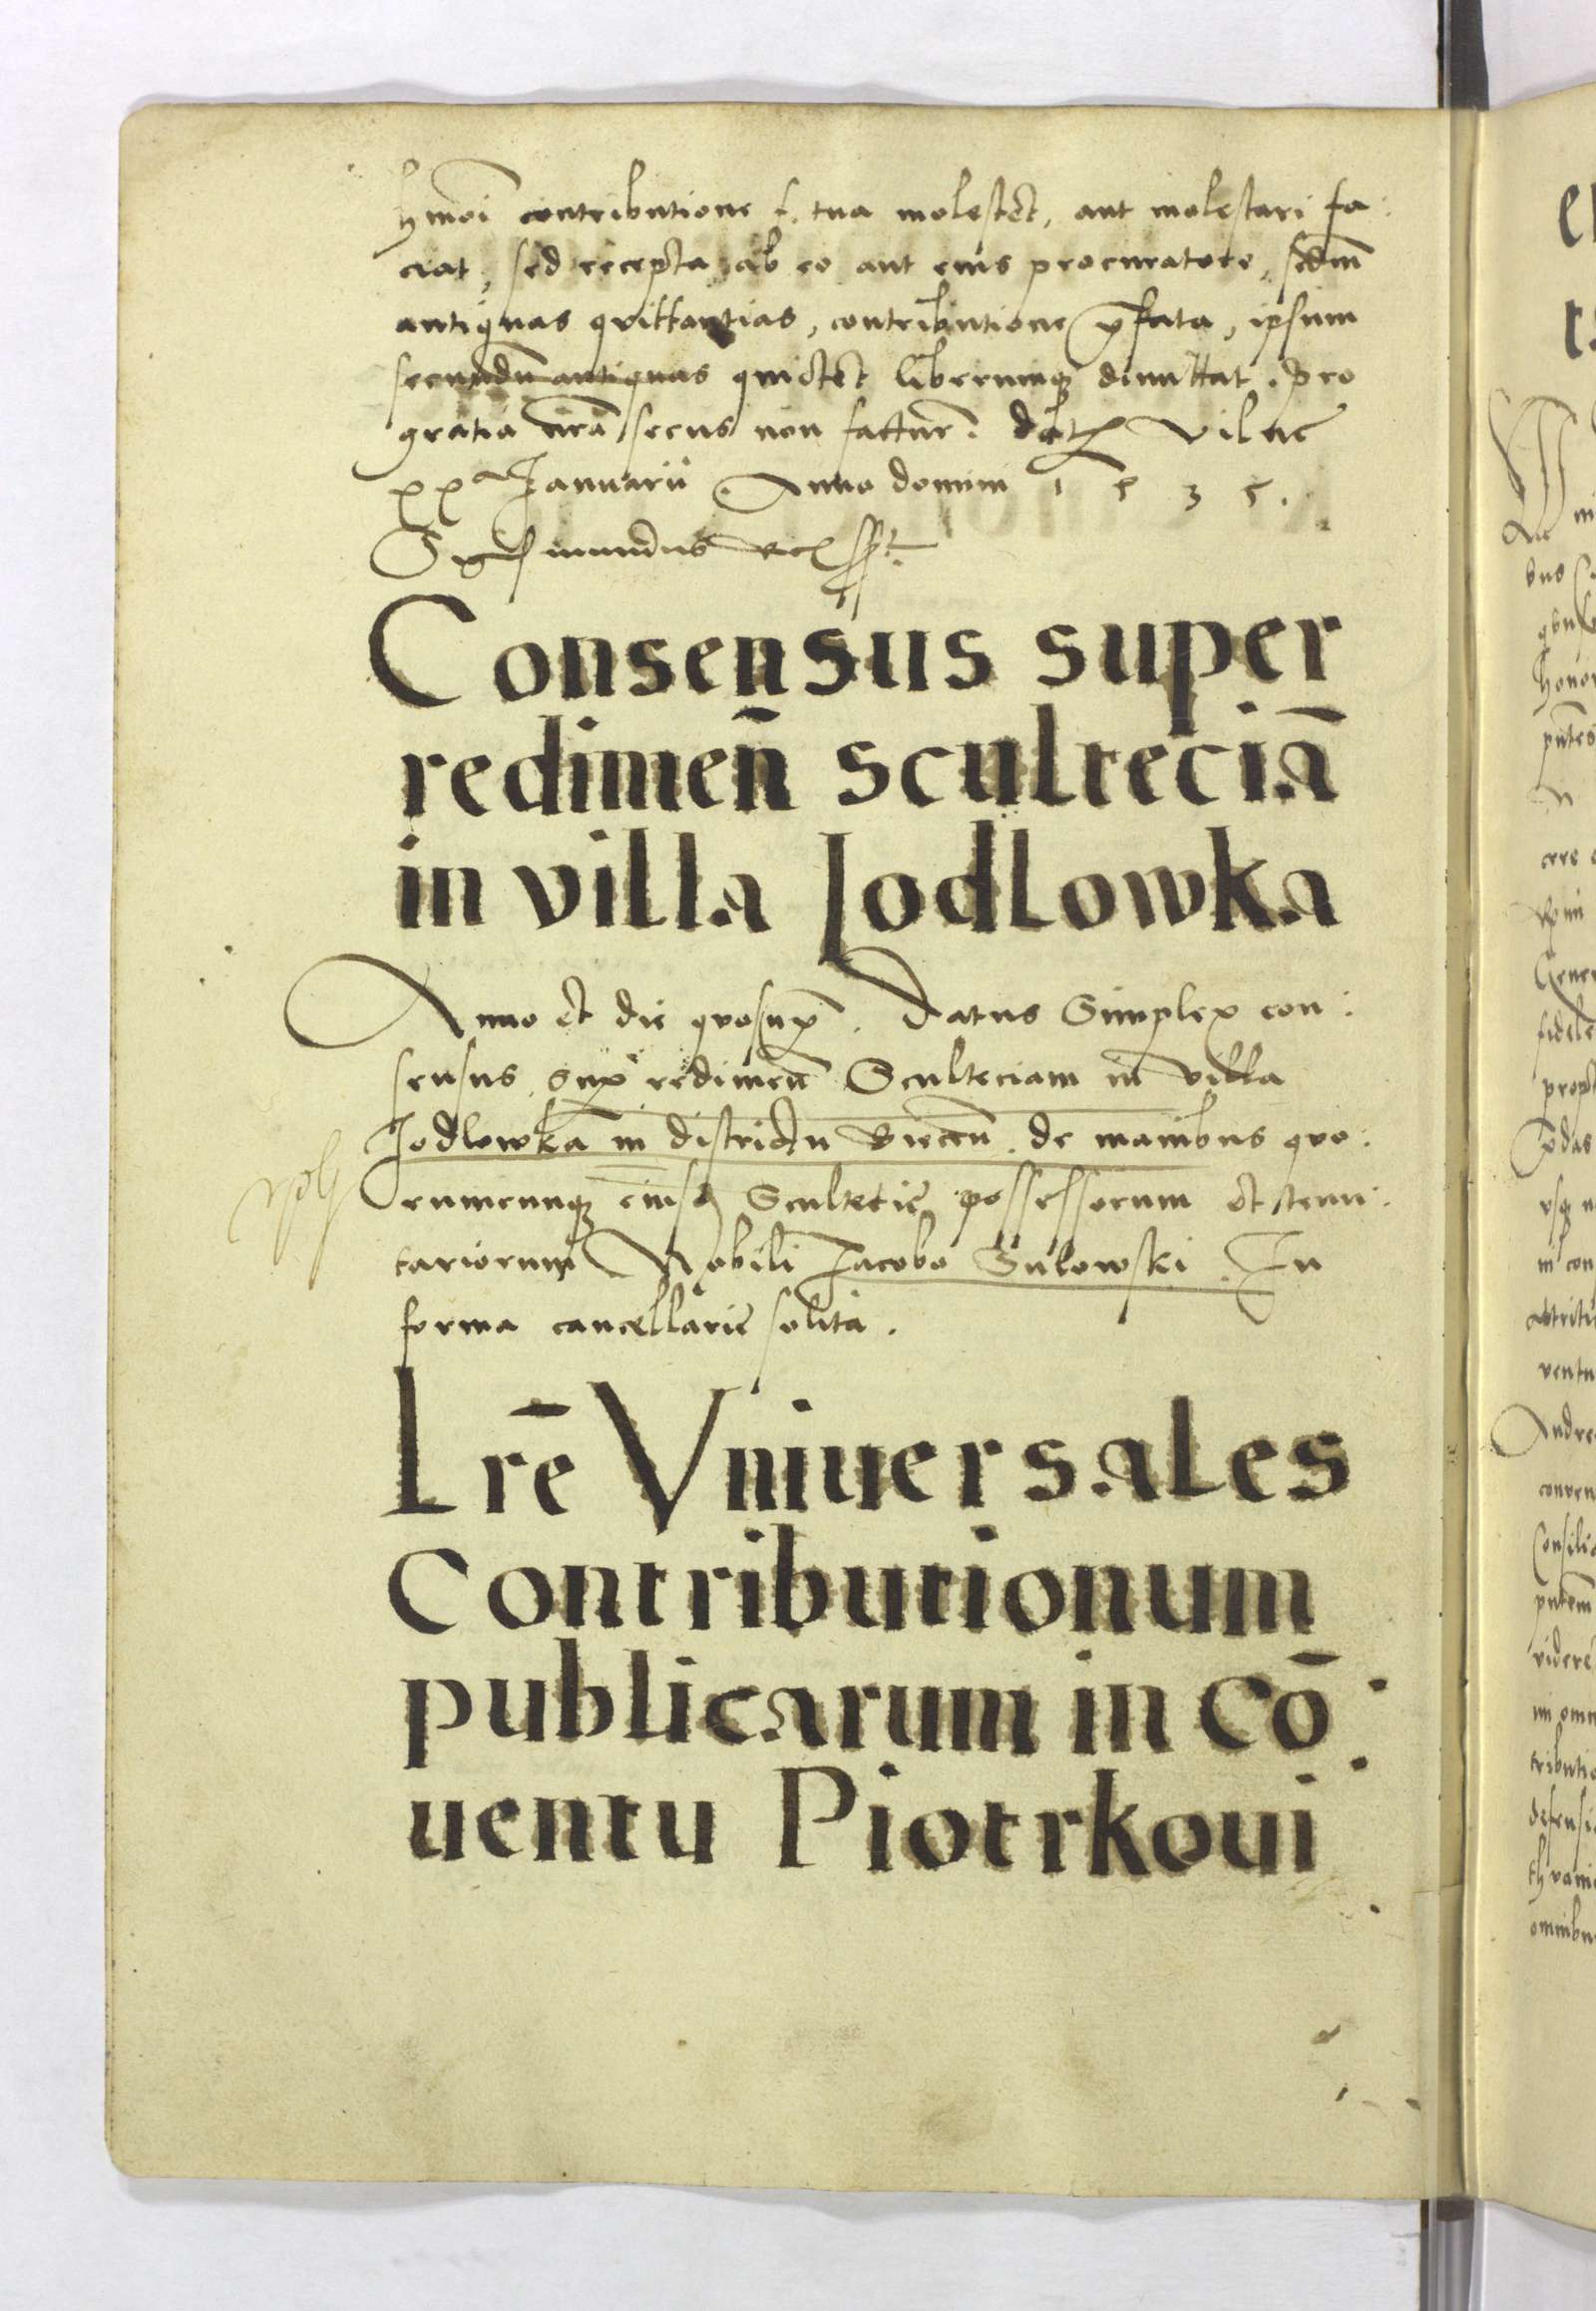 hmōi contributione f. tua molestet, aut molestari fa:
ciat, sed recepta ab eo aut eius procuratore, secdm̄
antiquas quittantias, contributione p̄fata, ipsum
secundū antiquas quictet liberumq; dimittat. Pro
gratia nr̄a secus non factur. Dat Vilnę
xxa Januarii Anno domini 1535.
Sigismundus Rex sst.
Consensus super
redimen̄ scultēciā
in villa Jodlowka
Anno et die quo sup̄. Datus Simplex con:
sensus sup̄ redimen̄ Sculteciam in villa
Jodlowka in districtu Biecen̄. de manibus quo:
rumcunq; eiusd Scultetię possessorum et tenu:
tariorum Nobili Jacobo Sulowski. In
forma cancellarię solita.
Lrē Vniuersales
Contributionum
publicarum in cō:
uentu Piotrkoui: